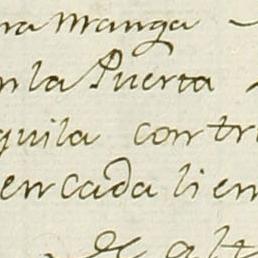 na manga
en la Puerta
quila contr
en cada lien
de alt